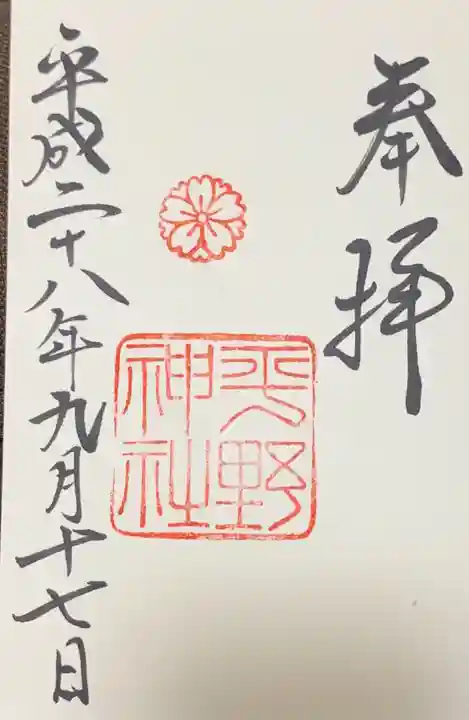 奉拝
平野
神社
平成二十八年九月十七日